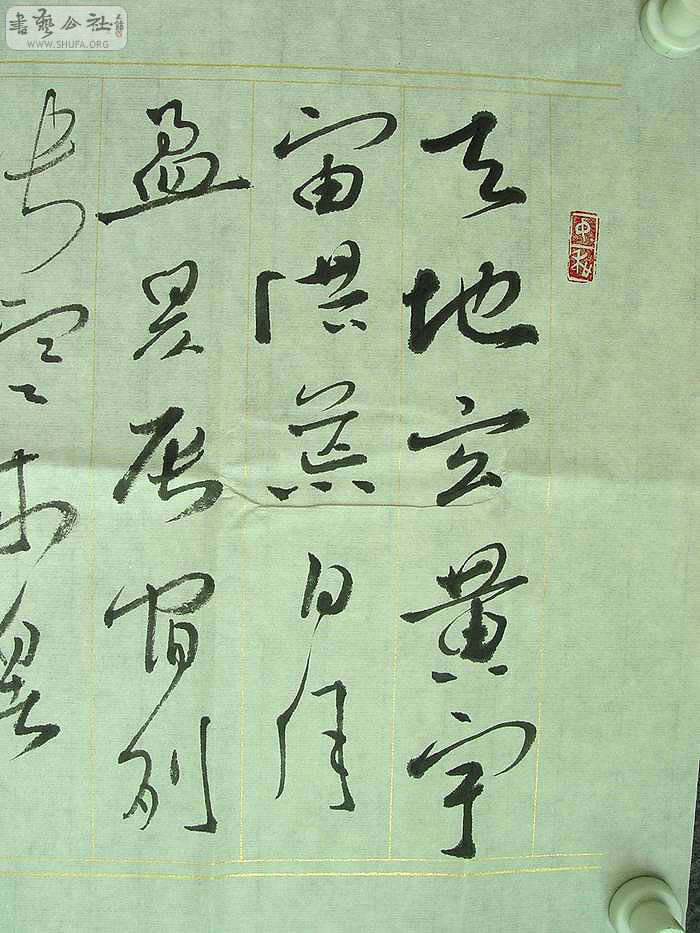 天地玄黄宇
宙洪荒日月
盈昃辰宿列
張寒来暑
書藝公社
WWW.SHUFA.ORG